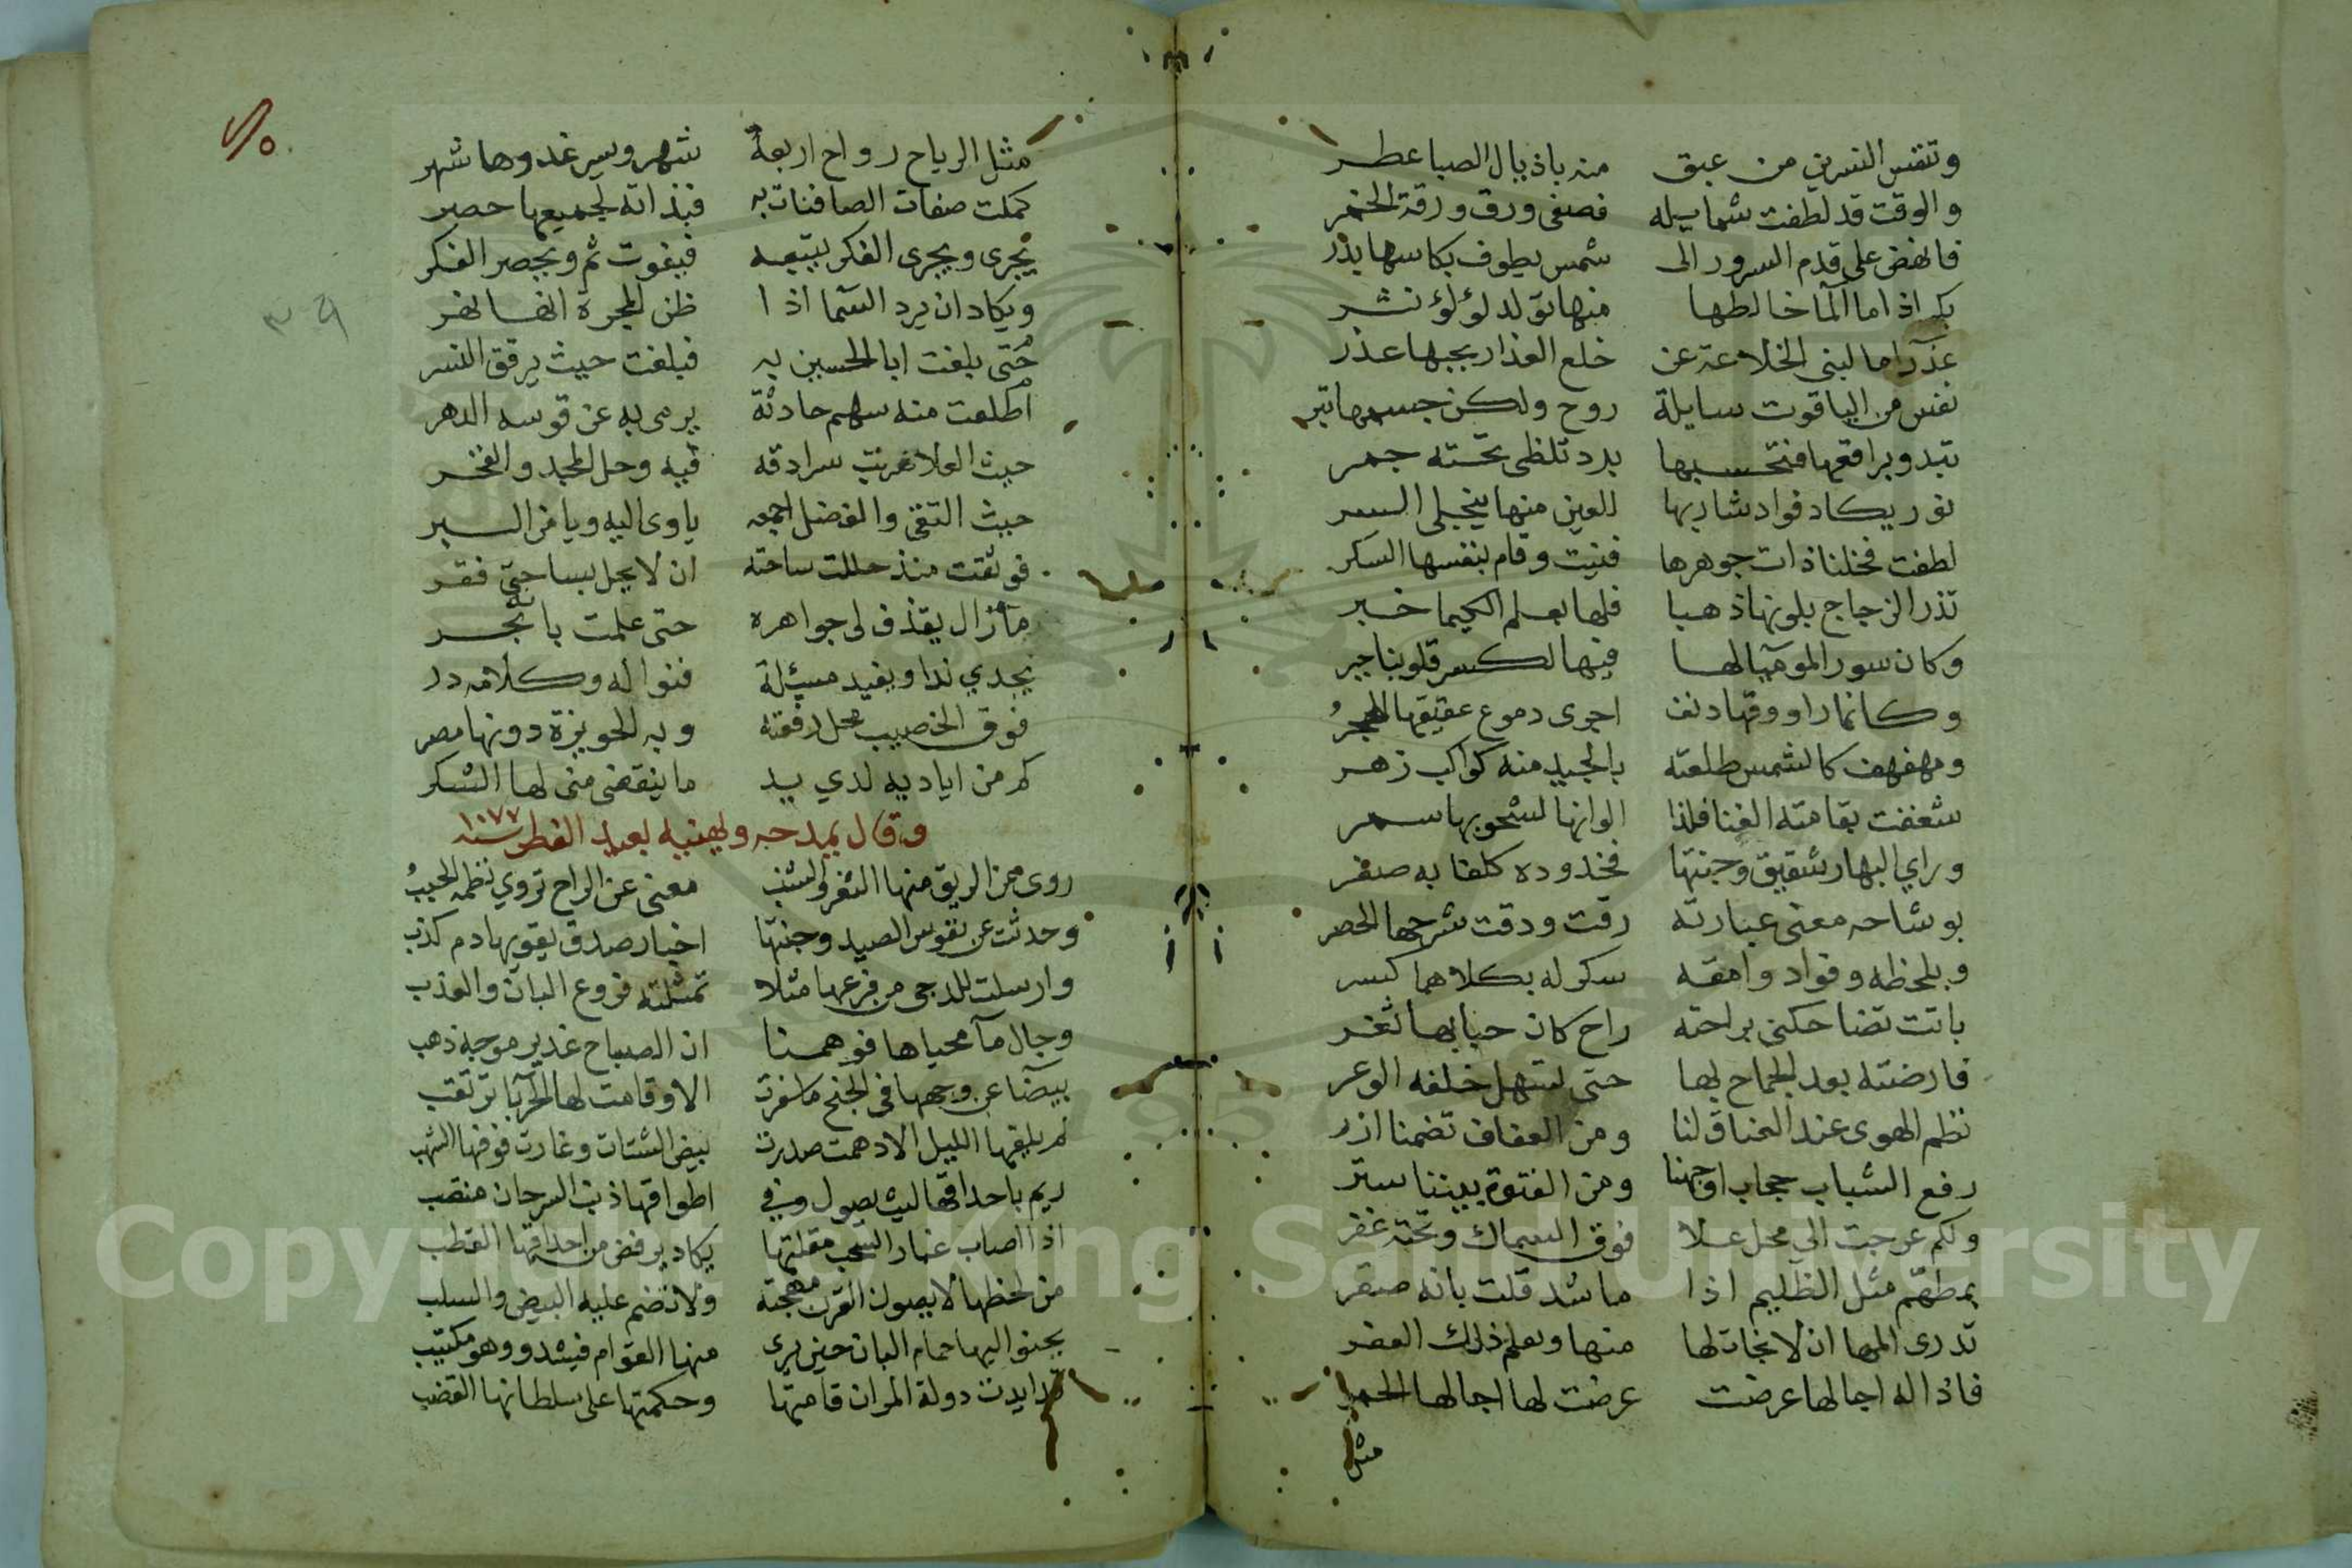 وتنفس النسرين من عبق منه باذيال الصبا عطر
والوقت قد لطفت شمايله فصفى ورق ورقة الخمر
فانهض على قدم السرور الى شمس يطوف بكاسها بدر
بكر اذا ما المآ خالطها منها تولد لؤلؤ نثر
عذرآ ما لبنى الخلاعة عن خلع العذار بحبها عذر
نفس من الياقوت سايلة روح ولكن جسمها تبر
تبدو براقعها فتحسبها برد تلظى تحته جمر
نور يكاد فواد شاربها للعين منها ينجلى السر
لطفت فخلنا ذات جوهرها فنيت وقام بنفسها السكر
تذر الزجاج بلونها ذهبا فلها بعلم الكيميا خبر
وكان سور الموميآ لها فيها لكسر قلوبنا جبر
وكانما راووقها دنف اجرى دموع عقيقها الهجر
ومهفهف كالشمس طلعته بالجيد منه كواكب زهر
شغفت بقامته القنا فلذا الوانها لشحوبها سمر
وراى البهار شقيق وجنتها فخدوده كلفا به صفر
بوشاحه معنى عبارته رقت ودقت شرحها الخصر
وبلحظه وفواد وامقه سكر له بكلاهما كسر
باتت تضاحكنى براحته راح كان حبابها ثغر
فارضته بعد الجماح بها حتى تسهل خلقه الوعر
نظم الهوى عند العناق لنا ومن العفاف تضمنا ازر
رفع الشباب حجاب اوجهنا ومن الفتوة بيننا ستر
ولكم عرجت الى محل علا فوق السماك وتحته غفر
بمطهم مثل الظليم اذا ما شد قلت بانه صقر
تدرى المها ان لا نجاة لها منها ويعلم ذلك العفر
فاذا له اجالها عرضت عرضت لها اجالها الحمر
مثل
مثل الرياح رواح اربعة شهر وسير غدوها شهر
كملت صفات الصافنات به فبذاته لجميعها حصر
يجرى ويجرى الفكر يتبعه فيفوت ثم ويحصر الفكر
ويكاد ان يرد السما اذا ظن المجرة انها نهر
حتى بلغت ابا الحسين به فبلغت حيث يرقق النسر
اطلعت منه سهم حادثة يرمى به عن قوسه الدهر
حيث العلا ضربت سرادقه فيه وحل المجد والفخر
حيث التقى والفضل اجمعه ياوى اليه ويامن البر
فوثقت منذ حللت ساحته ان لا يحل بساحتى فقر
مازال يقذف لى جواهره حتى علمت بانه بحر
يجدي ندا ويفيد مسئلة فنواله وكلامه در
فوق الخصيب محل رفقته وبه الحويزة دونها مصر
كم من اياديه لدي يد ما ينقضى منى لها الشكر
وقال يمدحه ويهنيه بعيد الفطر سنه ١٠٧٧
روى عن الريق منها الثغر والشنب معنى عن الراح تروي نظمه الحبب
وحدثت عن نفوس الصيد وجنتها اخبار صدق يقويها دم كذب
وارسلت للدجى من فرعها مثلا تمثلته فروع البان والعذب
وجال مآ محياها فوهمنا ان الصباح غدير موجه ذهب
بيضآ عن وجهها فى الجنح ما سفرت الا وقامت لها الحربآ ترتقب
لم يلقها الليل الا دهمت صدرت ببيض الشتات وغارت فوقها الشهب
ريم باحداقها ليث يصول وفى اطواقها ذنب السرحان منتصب
اذا اصاب غبار السحب مقلتها يكاد يرفض من احداقها القطب
من لحظها لا يصون القرن مهجته ولا تضم عليه البيض والسلب
يحنو اليها حمام البان حين يرى منها القوام فيشدو وهو مكتئب
قد ايدت دولة المران قامتها وحكمتها على سلطانها القضب
٣٩
Copyright © King Saud University
1957